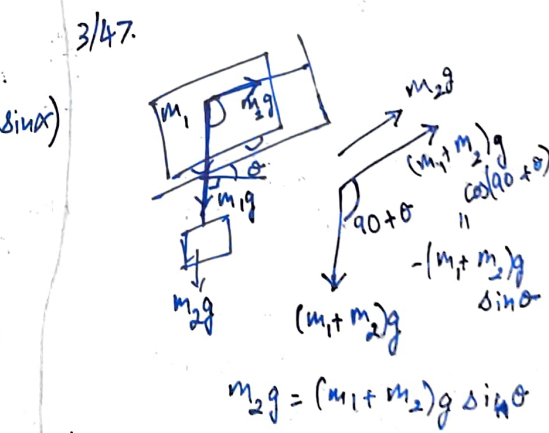 3/47.
sinα)
m₁
m₂g
θ
m₁g
m₂g
m₂g
(m₁+m₂)g
cos(90+θ)
=
-(m₁+m₂)g
sinθ
90+θ
(m₁+m₂)g
m₂g = (m₁+m₂)g sinθ